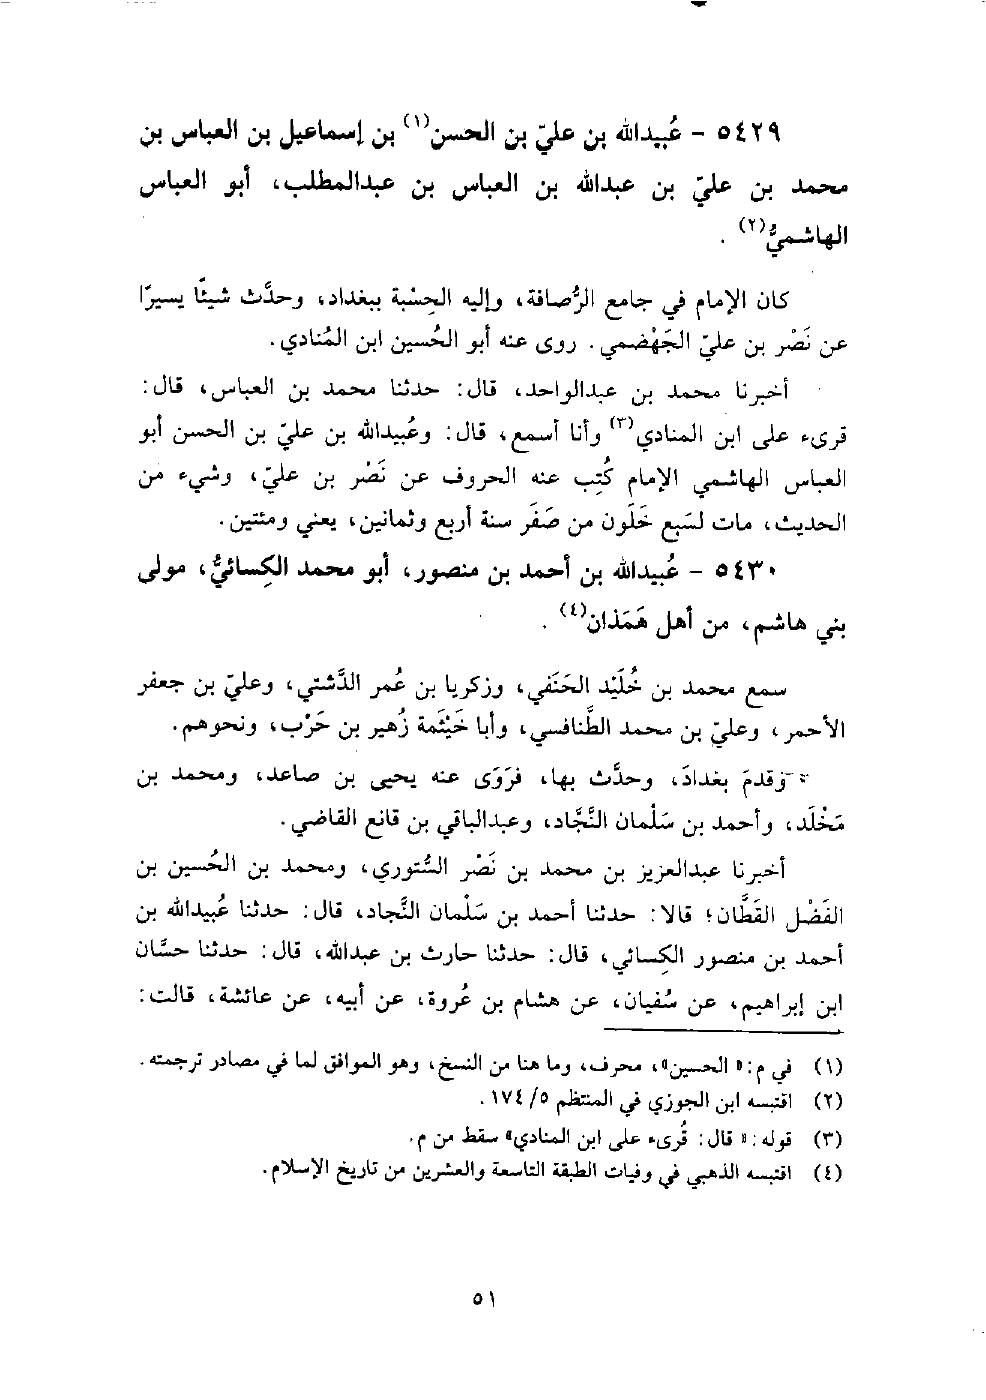 ٥٤٢٩ - عُبيدالله بن عليّ بن الحسن(١) بن إسماعيل بن العباس بن
محمد بن عليّ بن عبدالله بن العباس بن عبدالمطلب، أبو العباس
الهاشميُّ(٢) .
كان الإمام في جامع الرُّصافة، وإليه الحِسْبة ببغداد، وحدَّث شيئًا يسيرًا
عن نَصْر بن عليّ الجَهْضمي. روى عنه أبو الحُسين ابن المُنادي.
أخبرنا محمد بن عبدالواحد، قال: حدثنا محمد بن العباس، قال:
قرىء على ابن المنادي(٣) وأنا أسمع، قال: وعُبيدالله بن عليّ بن الحسن أبو
العباس الهاشمي الإمام كُتِب عنه الحروف عن نَصْر بن عليّ، وشيء من
الحديث، مات لسَبع خَلَون من صَفَر سنة أربع وثمانين، يعني ومئتين.
٥٤٣٠ - عُبيدالله بن أحمد بن منصور، أبو محمد الكِسائيُّ، مولى
بني هاشم، من أهل هَمَذان(٤) .
سمع محمد بن خُلَيْد الحَنَفي، وزكريا بن عُمر الدَّشتي، وعليّ بن جعفر
الأحمر، وعليّ بن محمد الطَّنافسي، وأبا خَيْثمة زُهير بن حَرْب، ونحوهم.
وقدمَ بغدادَ، وحدَّث بها، فرَوَى عنه يحيى بن صاعد، ومحمد بن
مَخْلَد، وأحمد بن سَلْمان النَّجَّاد، وعبدالباقي بن قانع القاضي.
أخبرنا عبدالعزيز بن محمد بن نَصْر السُّتوري، ومحمد بن الحُسين بن
الفَضْل القَطَّان؛ قالا: حدثنا أحمد بن سَلْمان النَّجاد، قال: حدثنا عُبيدالله بن
أحمد بن منصور الكِسائي، قال: حدثنا حارث بن عبدالله، قال: حدثنا حسَّان
ابن إبراهيم، عن سُفيان، عن هشام بن عُروة، عن أبيه، عن عائشة، قالت:
(١) في م: «الحسين»، محرف، وما هنا من النسخ، وهو الموافق لما في مصادر ترجمته.
(٢) اقتبسه ابن الجوزي في المنتظم ٥/ ١٧٤.
(٣) قوله: «قال: قُرىء على ابن المنادي» سقط من م.
(٤) اقتبسه الذهبي في وفيات الطبقة التاسعة والعشرين من تاريخ الإسلام.
٥١